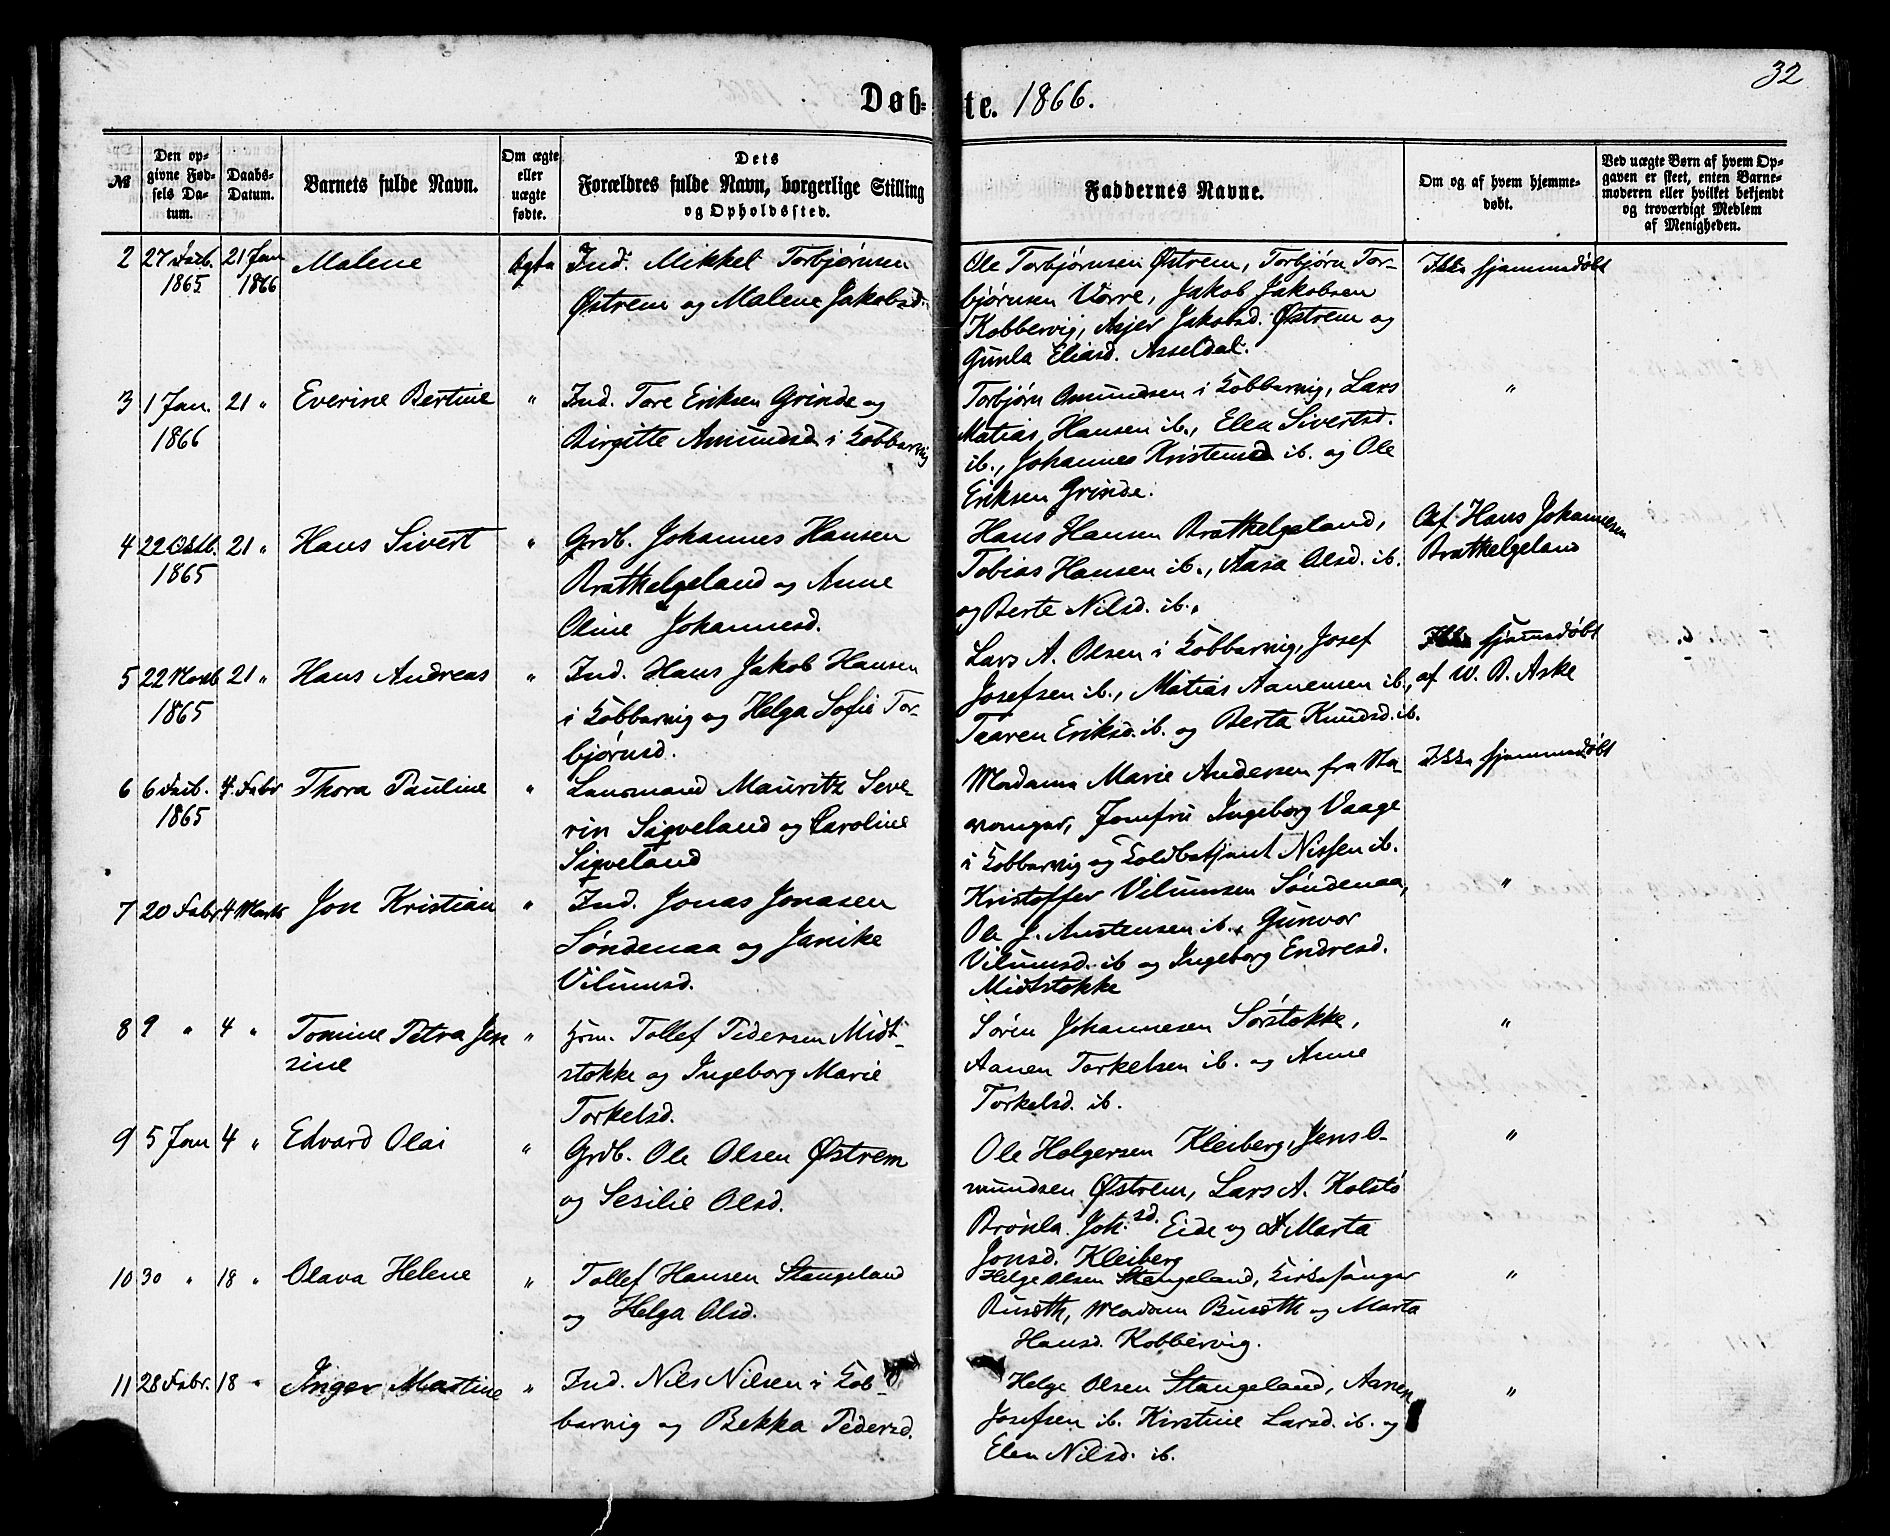 32
Døb- te. 1866.
№ | Den opgivne Fødsels Datum. | Daabs-Datum. | Barnets fulde Navn. | Om ægte eller uægte født. | Dets Forældres fulde Navn, borgerlige Stilling og Opholdssted. | Faddernes Navne. | Om og af hvem hjemmedøbt. | Ved uægte Børn af hvem Opgaven er skeet, enten Barnemoderen eller hvilket bekjendt og troværdigt Medlem af Menigheden.
2 27 1865 21 Jan 1866 Malene Ægte
Ind. Mikkel Torbjørnsen
Østrem og Malene Jakobsd.
Ole Torbjørnsen Østrem, Torbjørn Tor-
bjørnsen Vorre, Jakob Jakobsen
Kobbervig, Asjer Jakobsd. Østrem og
Gunla Eliasd. Asseldal.
Ikke hjemmedøbt
3 1 Jan. 1866 21 " Everine Bertine "
Ind. Tore Eriksen Grinde og
Birgitte Amundsd i Kobbervig
Torbjørn Omundsen i Kobbervig, Lars
Matias Hansen ib., Elen Sivertsd.
ib., Johannes ib. og Ole
Eriksen Grinde.
"
4 22 Oktb. 1865 21 " Hans Sivert "
Grdb. Johannes Hansen
Bratthelgeland og Anne
Oline Johannesd.
Hans Hansen Bratthelgeland,
Tobias Hansen ib., Aasa Olsd. ib.
og Berte Nilsd. ib.
Af Hans Johannesen
Bratthelgeland
5 22 Novb 1865 21 " Hans Andreas "
Ind. Hans Jakob Hansen
i Kobbervig og Helga Sofie Tor-
bjørnsd.
Lars A. Olsen i Kobbervig, Josef
Josefsen ib., Matias Aanensen ib.,
Taaren Eriksd. ib. og Berta Knudsd. ib.
hjemdøbt
af W. B. Aske
6 6 1865 4 Febr Thora Pauline "
Lensmand Mauritz Seve-
rin Sigveland og Caroline
Sigveland
Madame Marie Andersen fra Sta-
vanger, Jomfru Ingeborg Vaage
i Kobbervig og Toldbetjent Nissen ib.
Ikke hjemmedøbt
7 20 Febr 4 Marts Jon Kristian "
Ind. Jonas Jonasen
Søndenaa og Janike
Vilumsd.
Kristoffer Vilumsen Søndenaa,
Ole J. Austensen ib., Gunvor
Vilumsd. ib og Ingeborg Endresd.
Midtstokke
"
8 9 " 4 " Tomine Petra Jen
sine "
Hsm. Tollef Pedersen Midt-
stokke og Ingeborg Marie
Torkelsd.
Søren Johannesen Sørstokke,
Aanen Torkelsen ib. og Anne
Torkelsd. ib.
"
9 5 Jan 4 " Edvard Olai "
Grdb. Ole Olsen Østrem
og Sesilie Olsd.
Ole Holgersen Kleiberg, Jens O-
mundsen Østrem, Lars A. Kolstø
Brønla Joh.sd. Eide og Marta
Jonsd. Kleiberg
"
10 30 " 18 " Olava Helene "
Tollef Hansen Stangeland
og Helga Olsd.
Helge Olsen Stangeland, Kirkesanger
Busæth, Madam Busæth og Marta
Hansd. Kobbervig.
"
11 28 Febr. 18 " Inger Martine "
Ind. Nils Nilsen i Kob-
bervig og Bekka Pedersd.
Helge Olsen Stangeland, Aanen
Josefsen ib. Kirstine Larsd. ib. og
Elen Nilsd. ib.
"